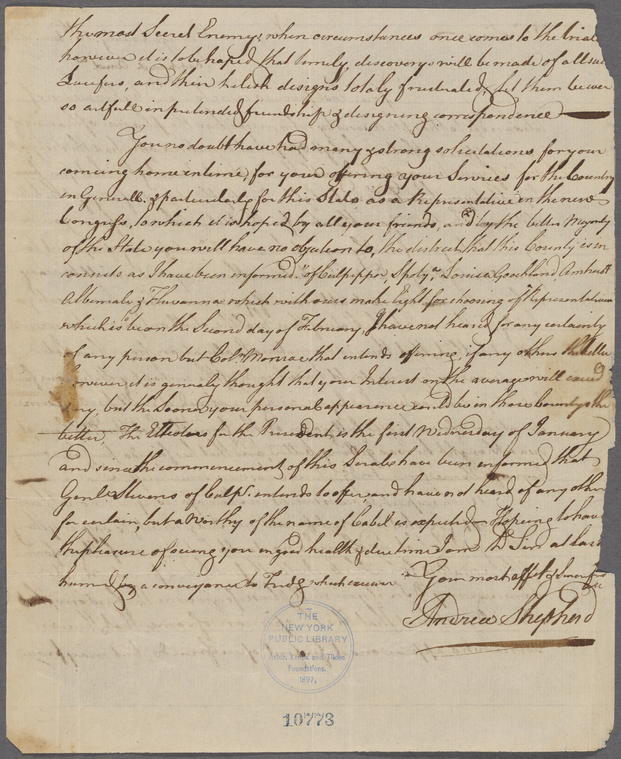 the most Secret Enemy, when circumstances once comes to the trial
however it is to be hoped that timely discoverys will be made of all such
Lucifers, and their helish designs totaly frustrated, let them be ever
so artfull in pretended friendship & designing correspondence
You no doubt have had many & strong solicitations for your
coming home in time, for your offering your Services for the Country
in Generall, & particularly for this State as a Representative in the new
Congress, to which it is hoped by all your friends, and by the better Majority
of the State you will have no objection to, the district that this County is in
consists as I have been informed of Culpepper, Spotya. Louisa Goochland Amherst
Albemale & Fluvanna which with ours make Eight for choosing of Representatives
which is to be on the Second day of February, I have not heard for any certainty
of any person but Colo. Monroe that intends offering, if any others the better
however it is generaly thought that your Interest on the average will exceed
any, but the Sooner your personal appearence could be in those Countys the
better, The Electors for the President is the first Wednesday of January
and since the commencement of this Scrale have been informed that
Genl. Stevens of Culpr. intends to offer and have not heard of any other
for certain, but a Worthy of the name of Cabel is expected. Hoping to have
the pleasure of seeing you in good health & due time I am Dr. Sir as last
a conveyance to Fredg which
Your most affect. &
Andrew Shepherd
THE
NEW YORK
PUBLIC LIBRARY
Astor, Lenox and Tilden
Foundations.
1897.
10773